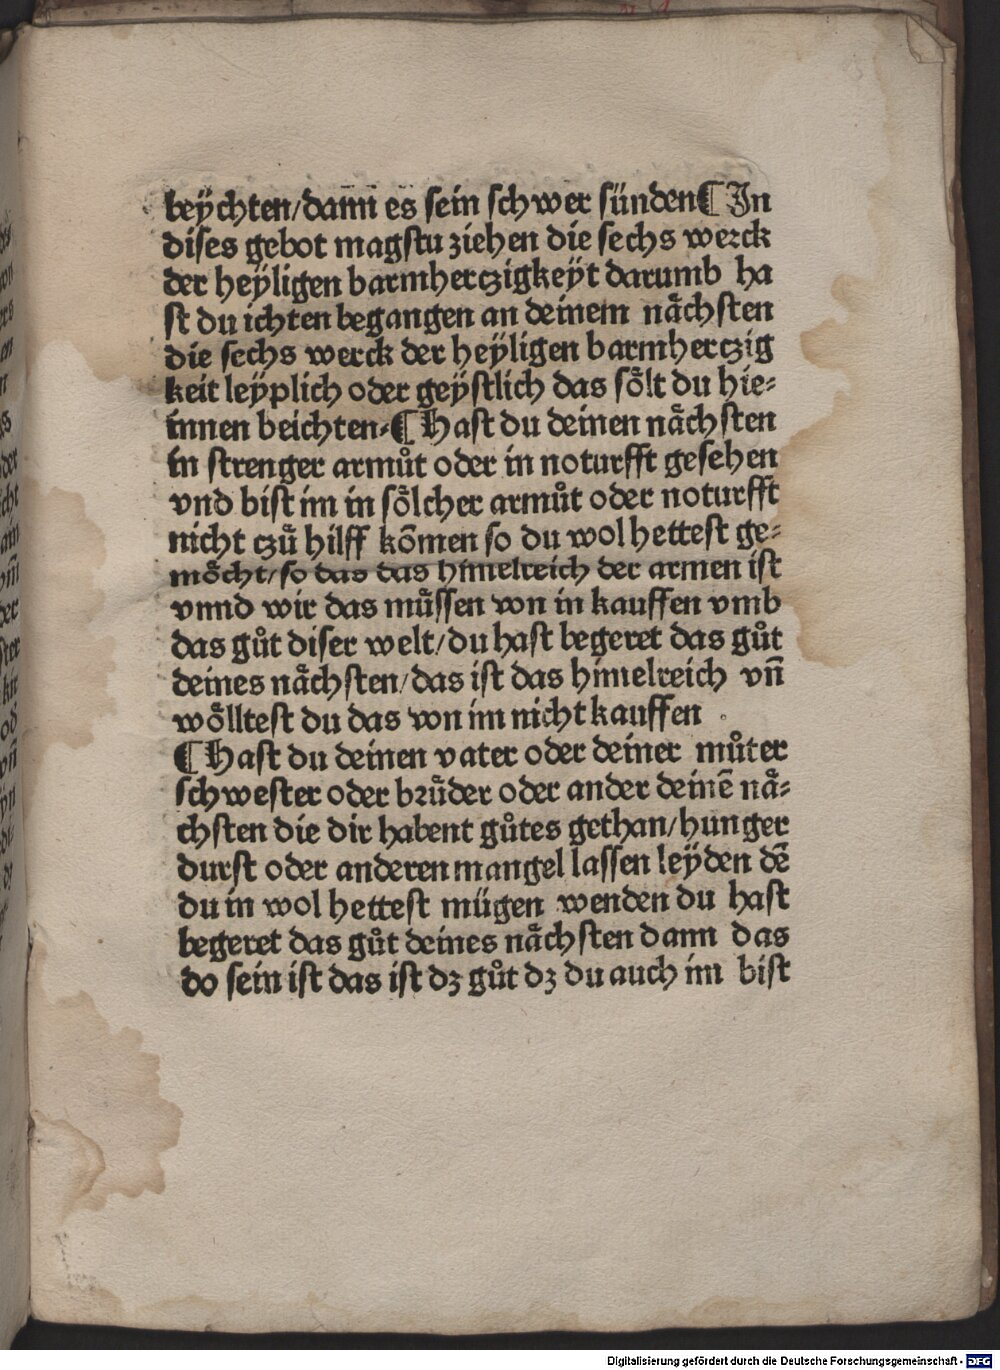 beÿchten/dann es sein schwer sünden¶ In
dises gebot magstu ziehen die sechs werck
der heÿligen barmherczigkeÿt darumb ha
st du ichten begangen an deinem nåchsten
die sechs werck der heÿligen barmherczig
keit leÿplich oder geÿstlich das sôlt du hie⸗
innen beichten⸗¶ Hast du deinen nåchsten
in strenger armůt oder in noturfft gesehen
vnd bist im in sôlcher armůt oder noturfft
nicht czů hilff kōmen so du wol hettest ge⸗
môcht/so das das himelreich der armen ist
vnnd wir das můssen von in kauffen vmb
das gůt diser welt/du hast begeret das gůt
deines nåchsten/das ist das himelreich vn̄
wôlltest du das von im nicht kauffen .
¶ Hast du deinen vater oder deiner můter
schwester oder brůder oder ander deinē nå⸗
chsten die dir habent gůtes gethan/hunger
durst oder anderen mangel lassen leÿden dē
du in wol hettest mügen wenden du hast
begeret das gůt deines nåchsten dann das
do sein ist das ist dz gůt dz du auch im bist
Digitalisierung gefördert durch die Deutsche Forschungsgemeinschaft - DFG